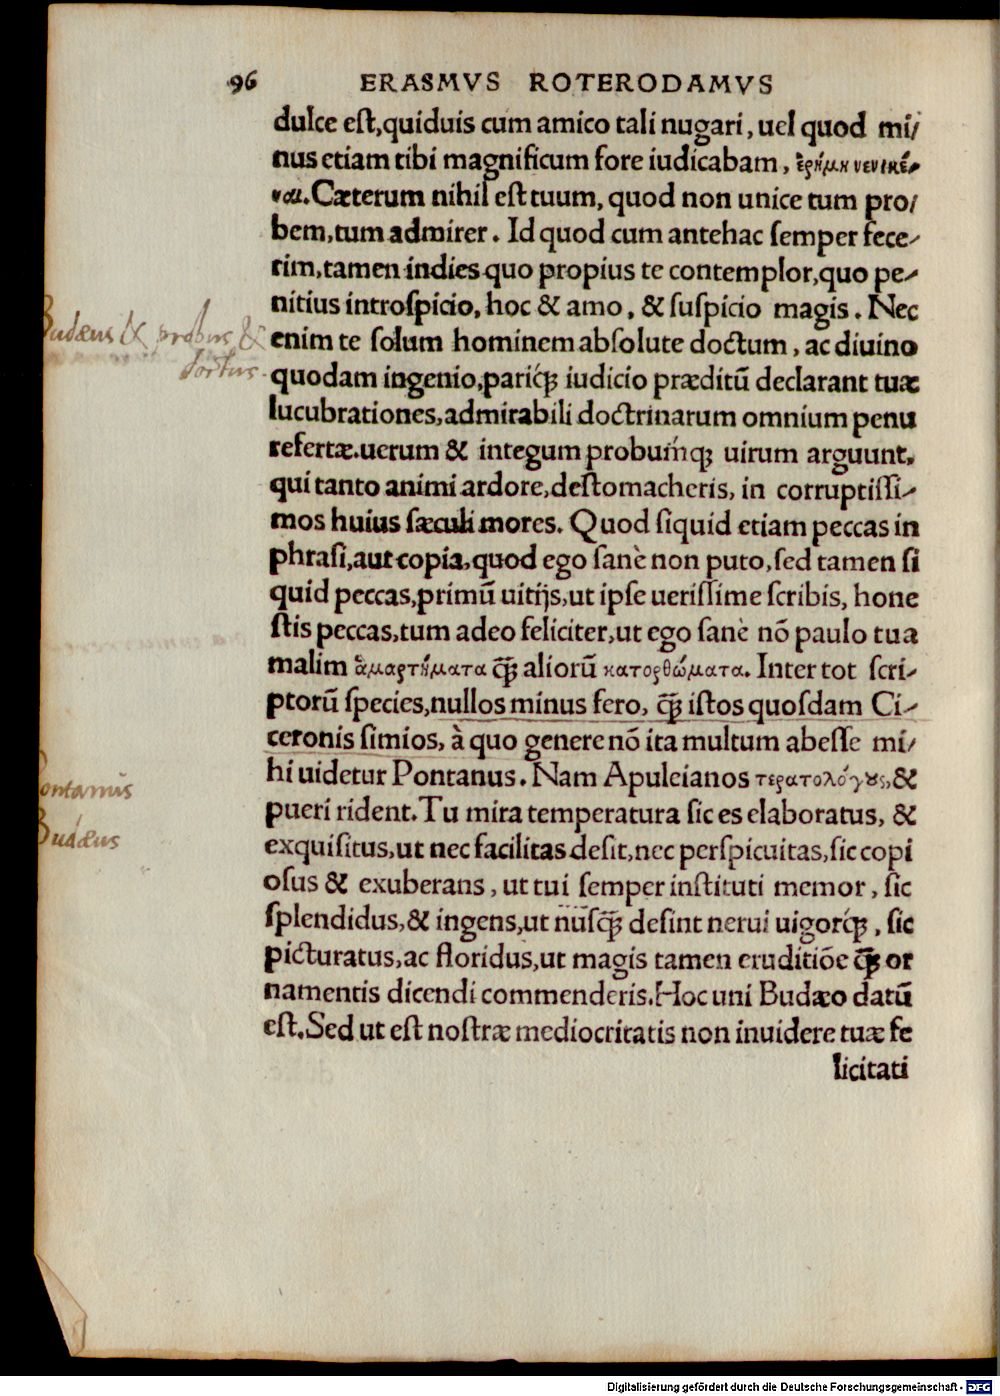 96 ERASMVS ROTERODAMVS
dulce eſt,quiduis cum amico tali nugari, uel quod mi/
nus etiam tibi magnificum fore iudicabam, ἐρήμη νενικέ-
ναι.Cæterum nihil eſt tuum, quod non unice tum pro/
bem,tum admirer. Id quod cum antehac ſemper fece-
rim,tamen indies quo propius te contemplor,quo pe-
nitius introſpicio, hoc & amo, & ſuſpicio magis. Nec
Budæus & probus &
enim te ſolum hominem abſolute doctum, ac diuino
doctus.
quodam ingenio,pariq́ꝫ iudicio præditū declarant tuæ
lucubrationes,admirabili doctrinarum omnium penu
refertæ.uerum & integum probumq́ꝫ uirum arguunt,
qui tanto animi ardore,deſtomacheris, in corruptiſſi-
mos huius ſæculi mores. Quod ſiquid etiam peccas in
phraſi,aut copia,quod ego ſanè non puto,ſed tamen ſi
quid peccas,primū uitijs,ut ipſe ueriſſime ſcribis, hone
ſtis peccas,tum adeo feliciter,ut ego ſanè nō paulo tua
malim ἁμαρτήματα q̄ꝫ aliorū κατορθώματα. Inter tot ſcri-
ptorū ſpecies,nullos minus fero, q̄ꝫ iſtos quoſdam Ci-
ceronis ſimios, à quo genere nō ita multum abeſſe mi/
Pontanus
hi uidetur Pontanus. Nam Apuleianos τερατολόγȣς,&
pueri rident.Tu mira temperatura ſic es elaboratus, &
Budæus
exquiſitus,ut nec facilitas deſit,nec perſpicuitas,ſic copi
oſus & exuberans, ut tui ſemper inſtituti memor, ſic
ſplendidus,& ingens,ut nūſq̄ꝫ deſint nerui uigorq́ꝫ, ſic
picturatus,ac floridus,ut magis tamen eruditiōe q̄ꝫ or
namentis dicendi commenderis.Hoc uni Budæo datū
eſt.Sed ut eſt noſtræ mediocritatis non inuidere tuæ fe
licitati
Digitalisierung gefördert durch die Deutsche Forschungsgemeinschaft - DFG